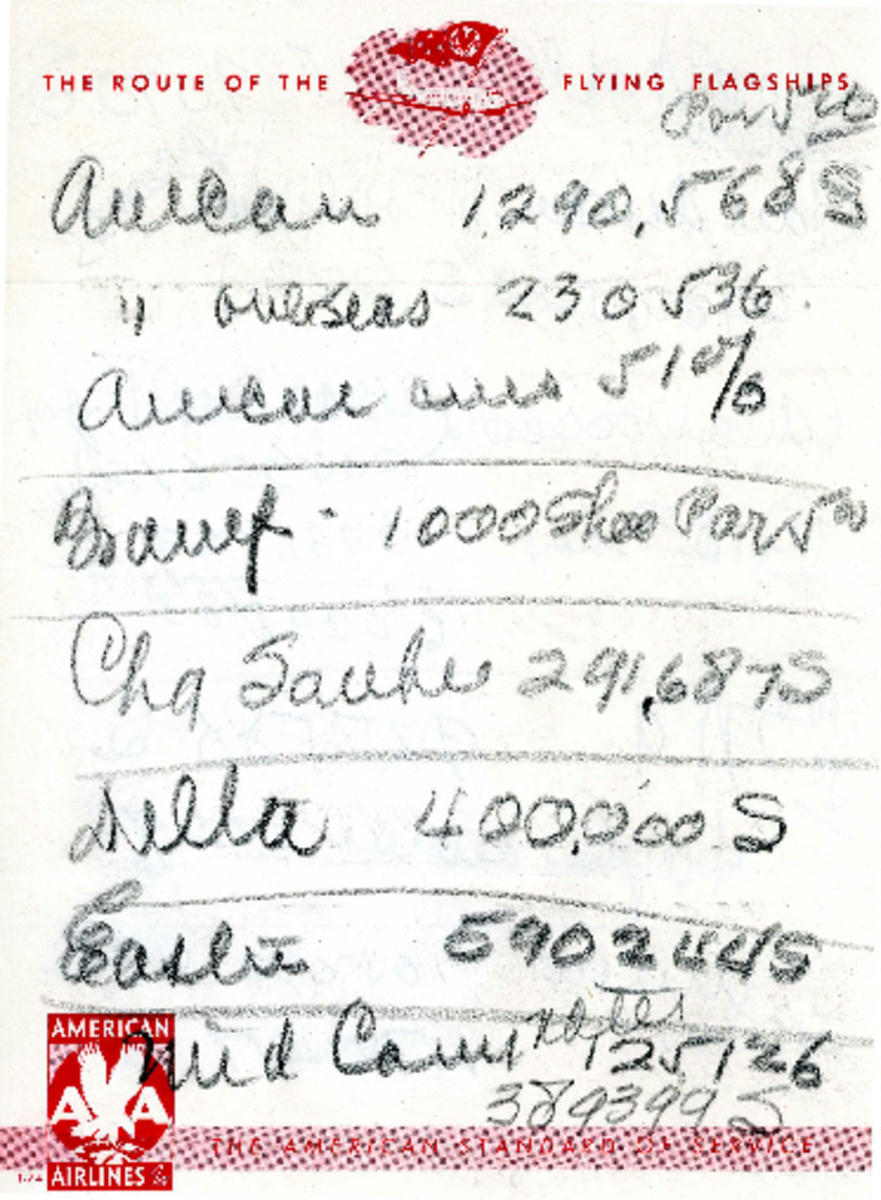 THE ROUTE OF THE FLYING FLAGSHIPS
Par 5 00
American 1,290,568 S
" overseas 230 536
American owns 51%
Braniff - 1000 Shrs Par 5 00
Chg Southern 291,687 S
Delta 400,000 S
Eastern 590244 S
Notes
Mid Cont 125126
389399 S
AMERICAN
AA
AIRLINES
THE AMERICAN STANDARD OF SERVICE